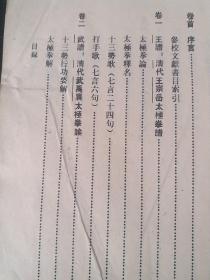 卷首 序言
參校文獻書目索引
卷一 王譜:清代王宗岳太極拳譜
太極拳論
太極拳釋名
十三勢歌(七言二十四句)
打手歌(七言六句)
卷二 武譜:清代武禹襄太極拳論
十三勢行功要解
太極拳解
目錄